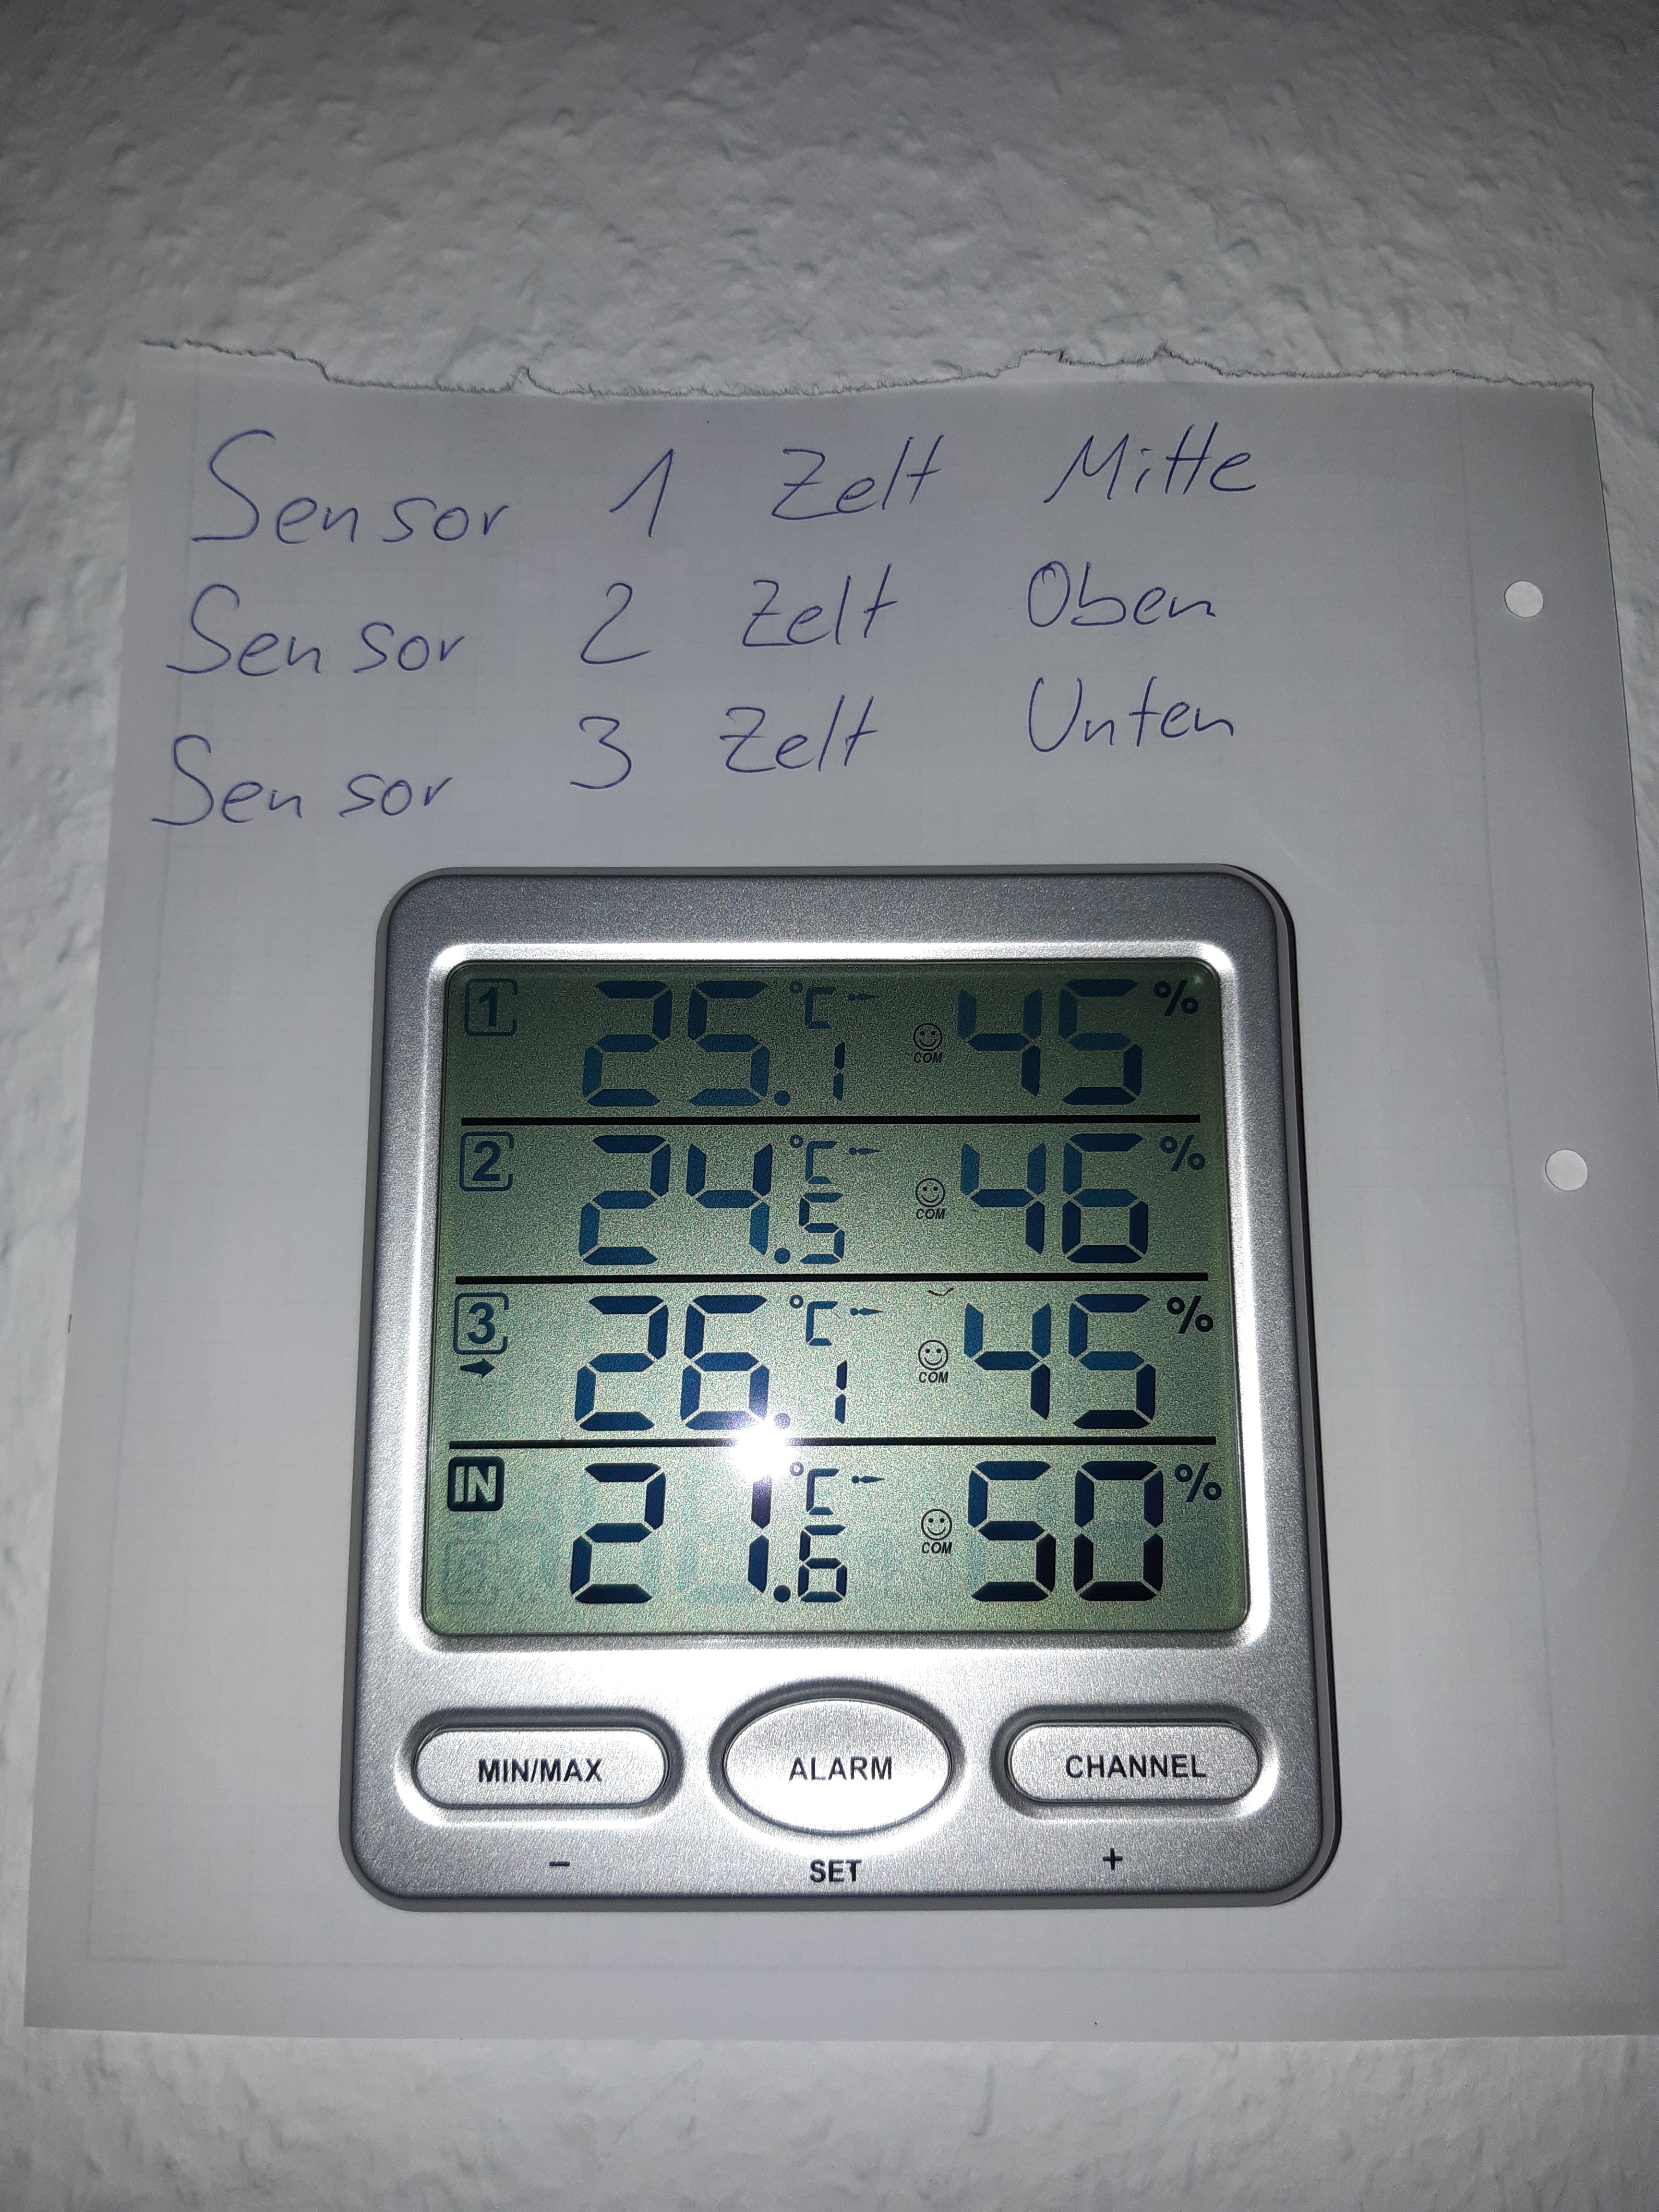 Sensor 1 Zelt Mitte
Sensor 2 Zelt Oben
Sensor 3 Zelt Unten
1 25.1 °C COM 45 %
2 24.5 °C COM 46 %
3 26.1 °C COM 45 %
IN 21.6 °C COM 50 %
MIN/MAX ALARM CHANNEL
- SET +